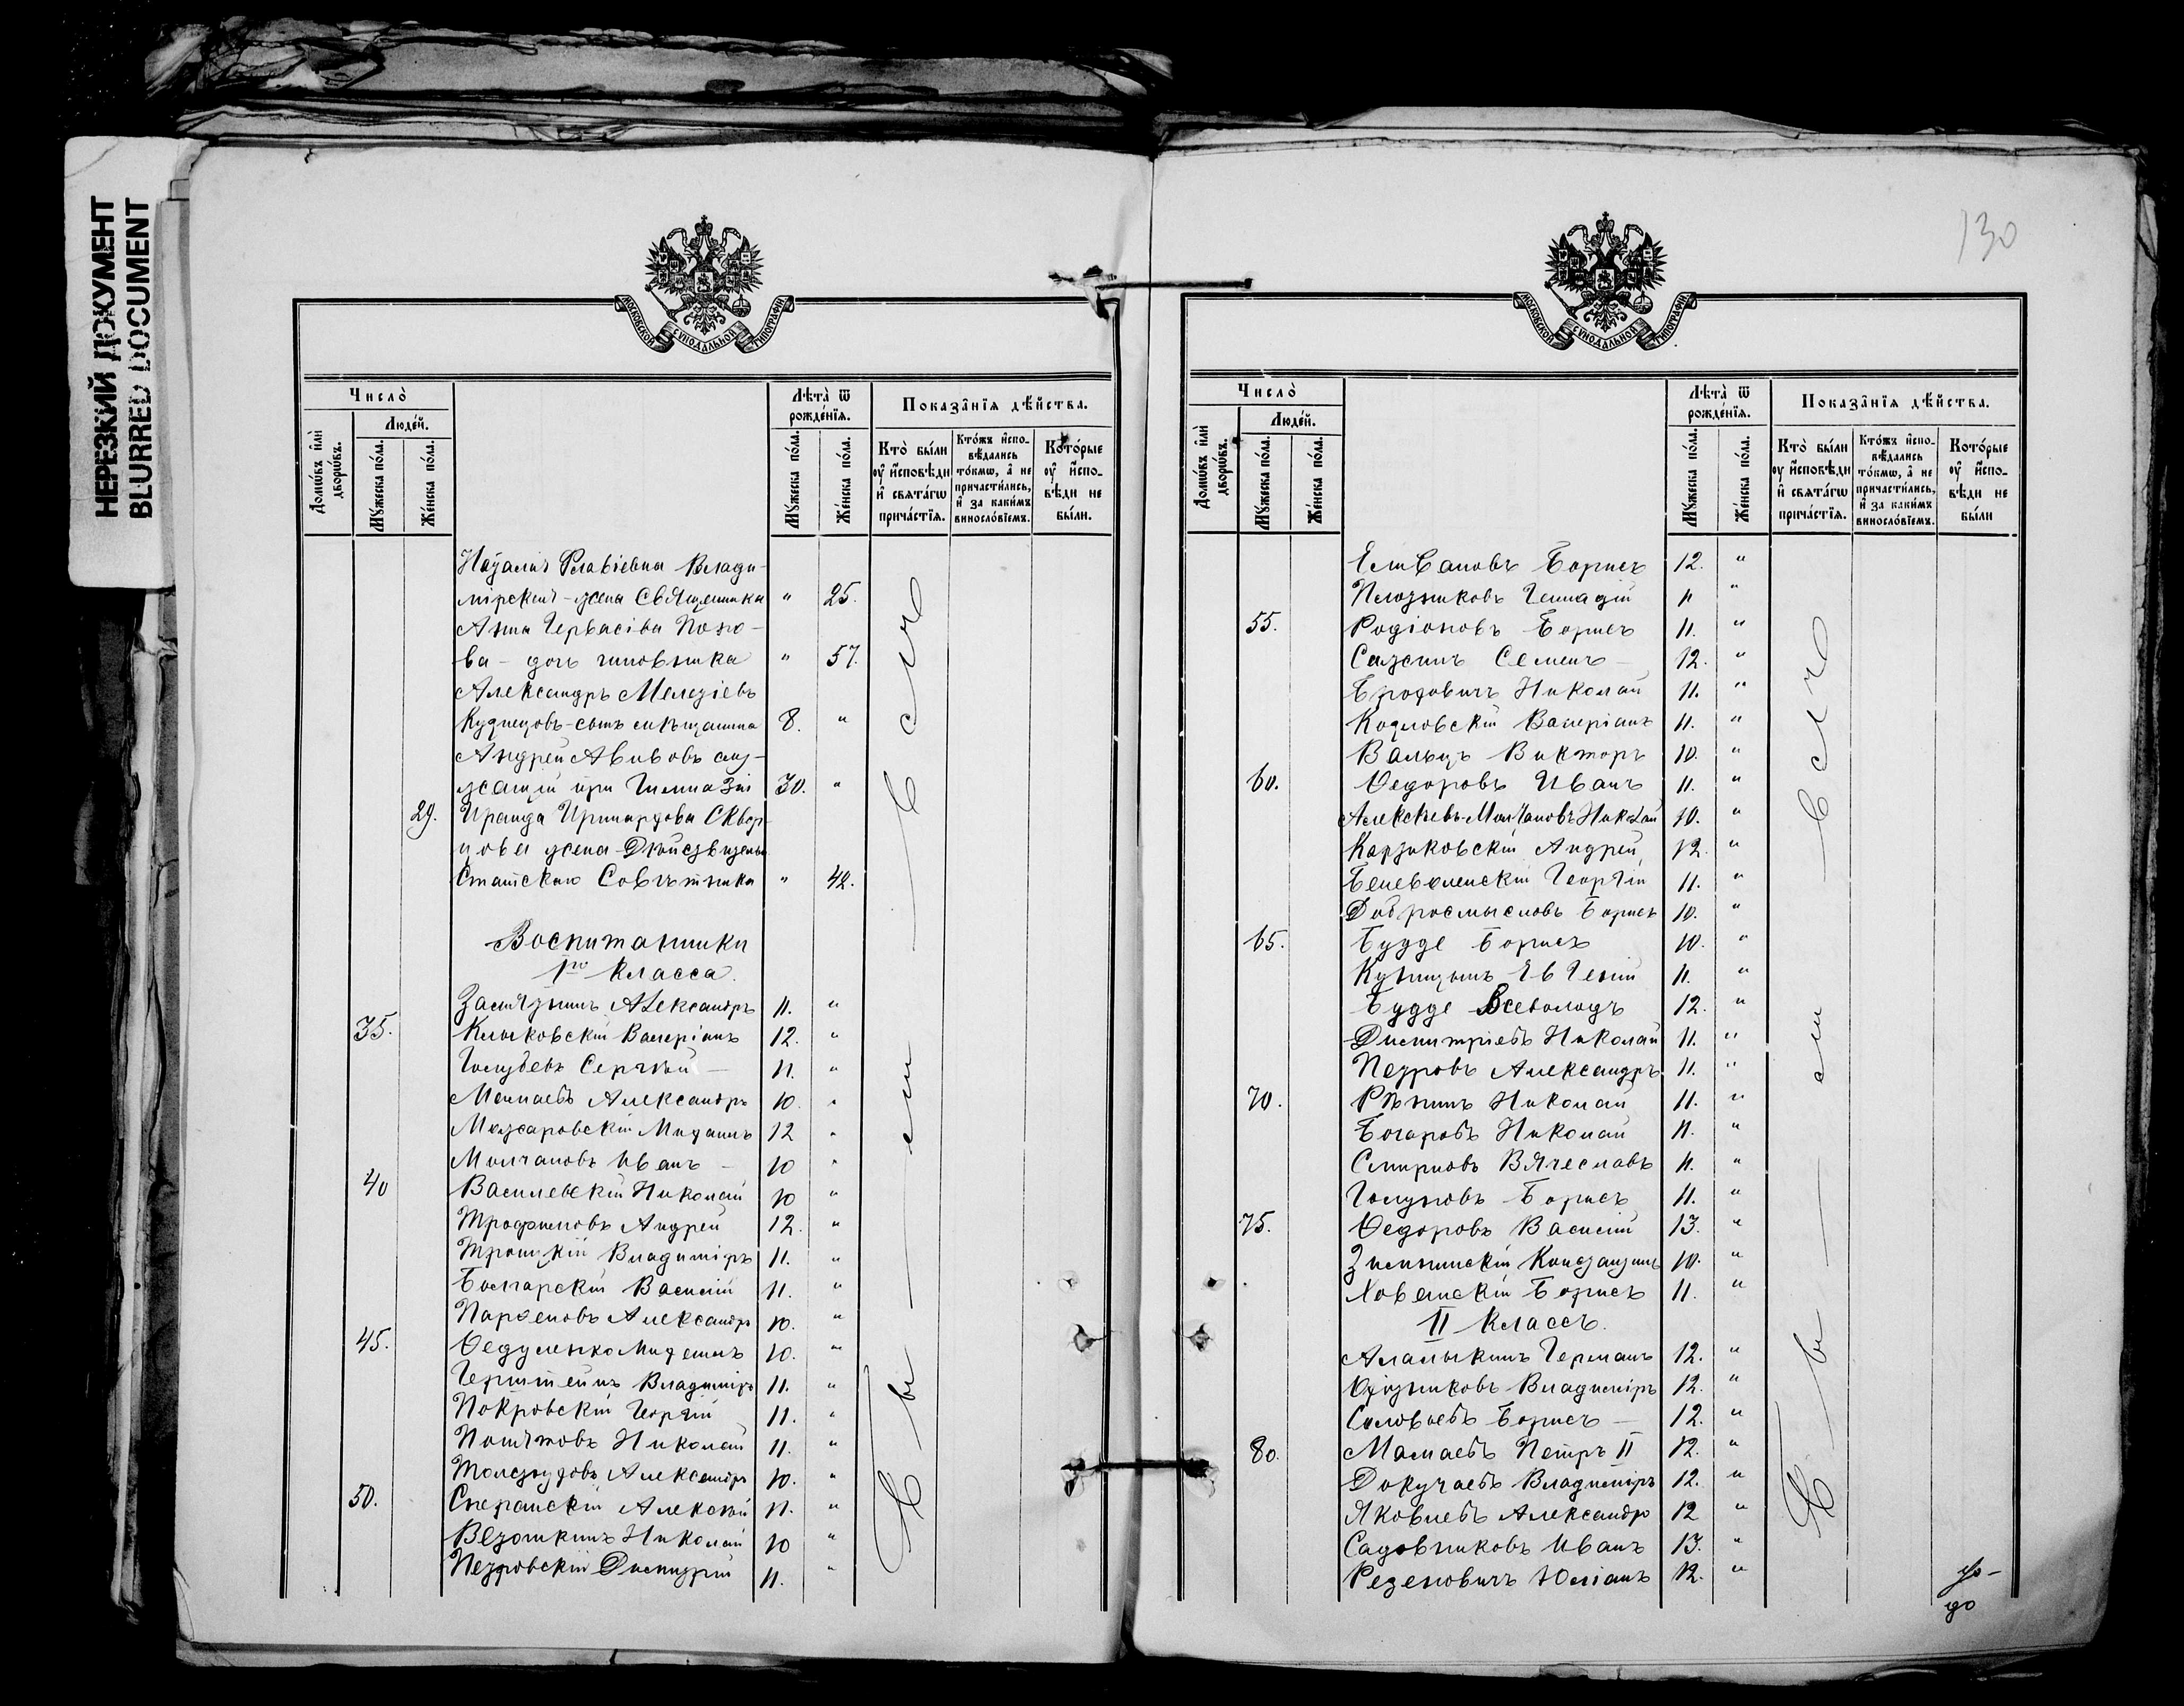 НЕРЕЗКИЙ ДОКУМЕНТ
BLURRED DOCUMENT
МОСКОВСКОЙ СУНОДАЛЬНОЙ ТИПОГРАФІИ
Число̀
Люде́й.
Домѡ́въ и҆лѝ дворѡ́въ.
Мꙋ́жеска по́ла.
Же́нска по́ла.
Лѣта̀ ѿ рожде́нїѧ.
Мꙋ́жеска по́ла.
Же́нска по́ла.
Показа̑нїѧ дѣ́йства.
Кто̀ бы́ли ᲂу҆ и҆сповѣ́ди и҆ свѧта́гѡ прича́стїѧ.
Кто́жъ и҆сповѣ́дались то́кмѡ, а҆ не причасти́лись, и҆ за каки́мъ виносло́вїемъ.
Кото́рые ᲂу҆ и҆сповѣ́ди не бы́ли.
Наталія Флавіевна Влади-
мірская - жена Священника " 25.
Анна Гервасіва Попо-
ва - дочь чиновника " 57.
Александръ Мелетіевъ
Кузнецовъ - сынъ мѣщанина 8. "
Андрей Авивовъ слу-
жащій при Гимназіи 30. "
29. Ираида Иринархова Сквор-
цова жена Дѣйствительн
Статскаго Совѣтника " 42.
Воспитанники
1го класса.
Александръ 11. "
35. Валеріанъ 12. "
Голубевъ Сергѣй — 11. "
Мамаевъ Александръ 10. "
Можаровскій Михаилъ 12 "
Молчановъ Иванъ — 10 "
40 Василевскій Николай 10 "
Трофимовъ Андрей 12. "
Троицкій Владиміръ 11. "
Болгарскій Василій 11. "
Парѳеновъ Александръ 10. "
45. Ѳедуленко Михаилъ 10. "
Герштейнъ Владиміръ 11. "
Покровскій Георгій 11. "
Николай 11. "
Александръ 10. "
50. Сперанскій Алексѣй 11. "
Николай 10 "
Петровскій Димитрій 11. "
Всѣ были
130
МОСКОВСКОЙ СУНОДАЛЬНОЙ ТИПОГРАФІИ
Число̀
Люде́й.
Домѡ́въ и҆лѝ дворѡ́въ.
Мꙋ́жеска по́ла.
Же́нска по́ла.
Лѣта̀ ѿ рожде́нїѧ.
Мꙋ́жеска по́ла.
Же́нска по́ла.
Показа̑нїѧ дѣ́йства.
Кто̀ бы́ли ᲂу҆ и҆сповѣ́ди и҆ свѧта́гѡ прича́стїѧ.
Кто́жъ и҆сповѣ́дались то́кмѡ, а҆ не причасти́лись, и҆ за каки́мъ виносло́вїемъ.
Кото́рые ᲂу҆ и҆сповѣ́ди не бы́ли
Борисъ 12. "
Плотниковъ Геннадій 11 "
55. Родіоновъ Борисъ 11. "
Сажинъ Семенъ — 12. "
Николай 11. "
Козловскій Валеріанъ 11. "
Вальцъ Викторъ 10. "
60. Ѳедоровъ Иванъ 11. "
Алексѣевъ-Молчановъ Николай 10. "
Андрей 12. "
Беневоленскій Георгій 11. "
Добросмысловъ Борисъ 10. "
65. Будде Борисъ 10. "
Куницынъ Евгеній 11. "
Будде Всеволодъ 12. "
Димитріевъ Николай 11. "
Петровъ Александръ 11. "
70. Рѣпинъ Николай 11. "
Николай 11. "
Смирновъ Вячеславъ 11. "
Борисъ 11. "
75. Ѳедоровъ Василій 13. "
Константинъ 10. "
Хованскій Борисъ 11. "
II классъ.
Германъ 12. "
Владиміръ 12. "
Соловьевъ Борисъ — 12. "
80. Мамаевъ Петръ II 12. "
Докучаевъ Владиміръ 12. "
Яковлевъ Александръ 12 "
Садовниковъ Иванъ 13. "
Юліанъ 12. "